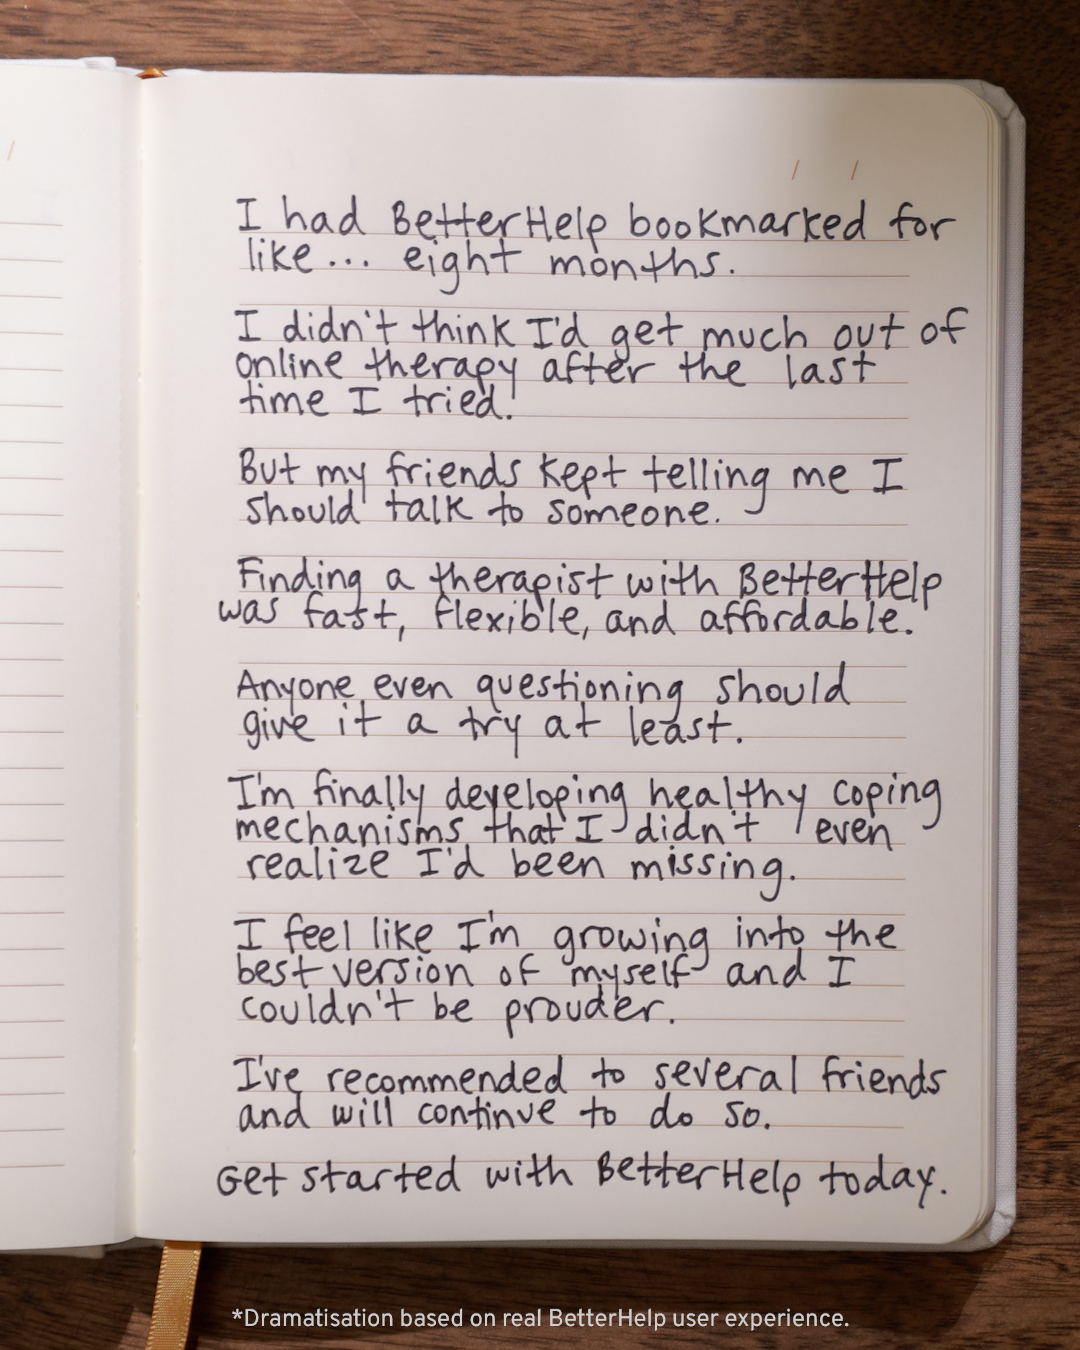 I had BetterHelp bookmarked for
like... eight months.
I didn't think I'd get much out of
online therapy after the last
time I tried.
But my friends kept telling me I
should talk to someone.
Finding a therapist with BetterHelp
was fast, flexible, and affordable.
Anyone even questioning should
give it a try at least.
I'm finally developing healthy coping
mechanisms that I didn't even
realize I'd been missing.
I feel like I'm growing into the
best version of myself and I
couldn't be prouder.
I've recommended to several friends
and will continue to do so.
Get started with BetterHelp today.
*Dramatisation based on real BetterHelp user experience.